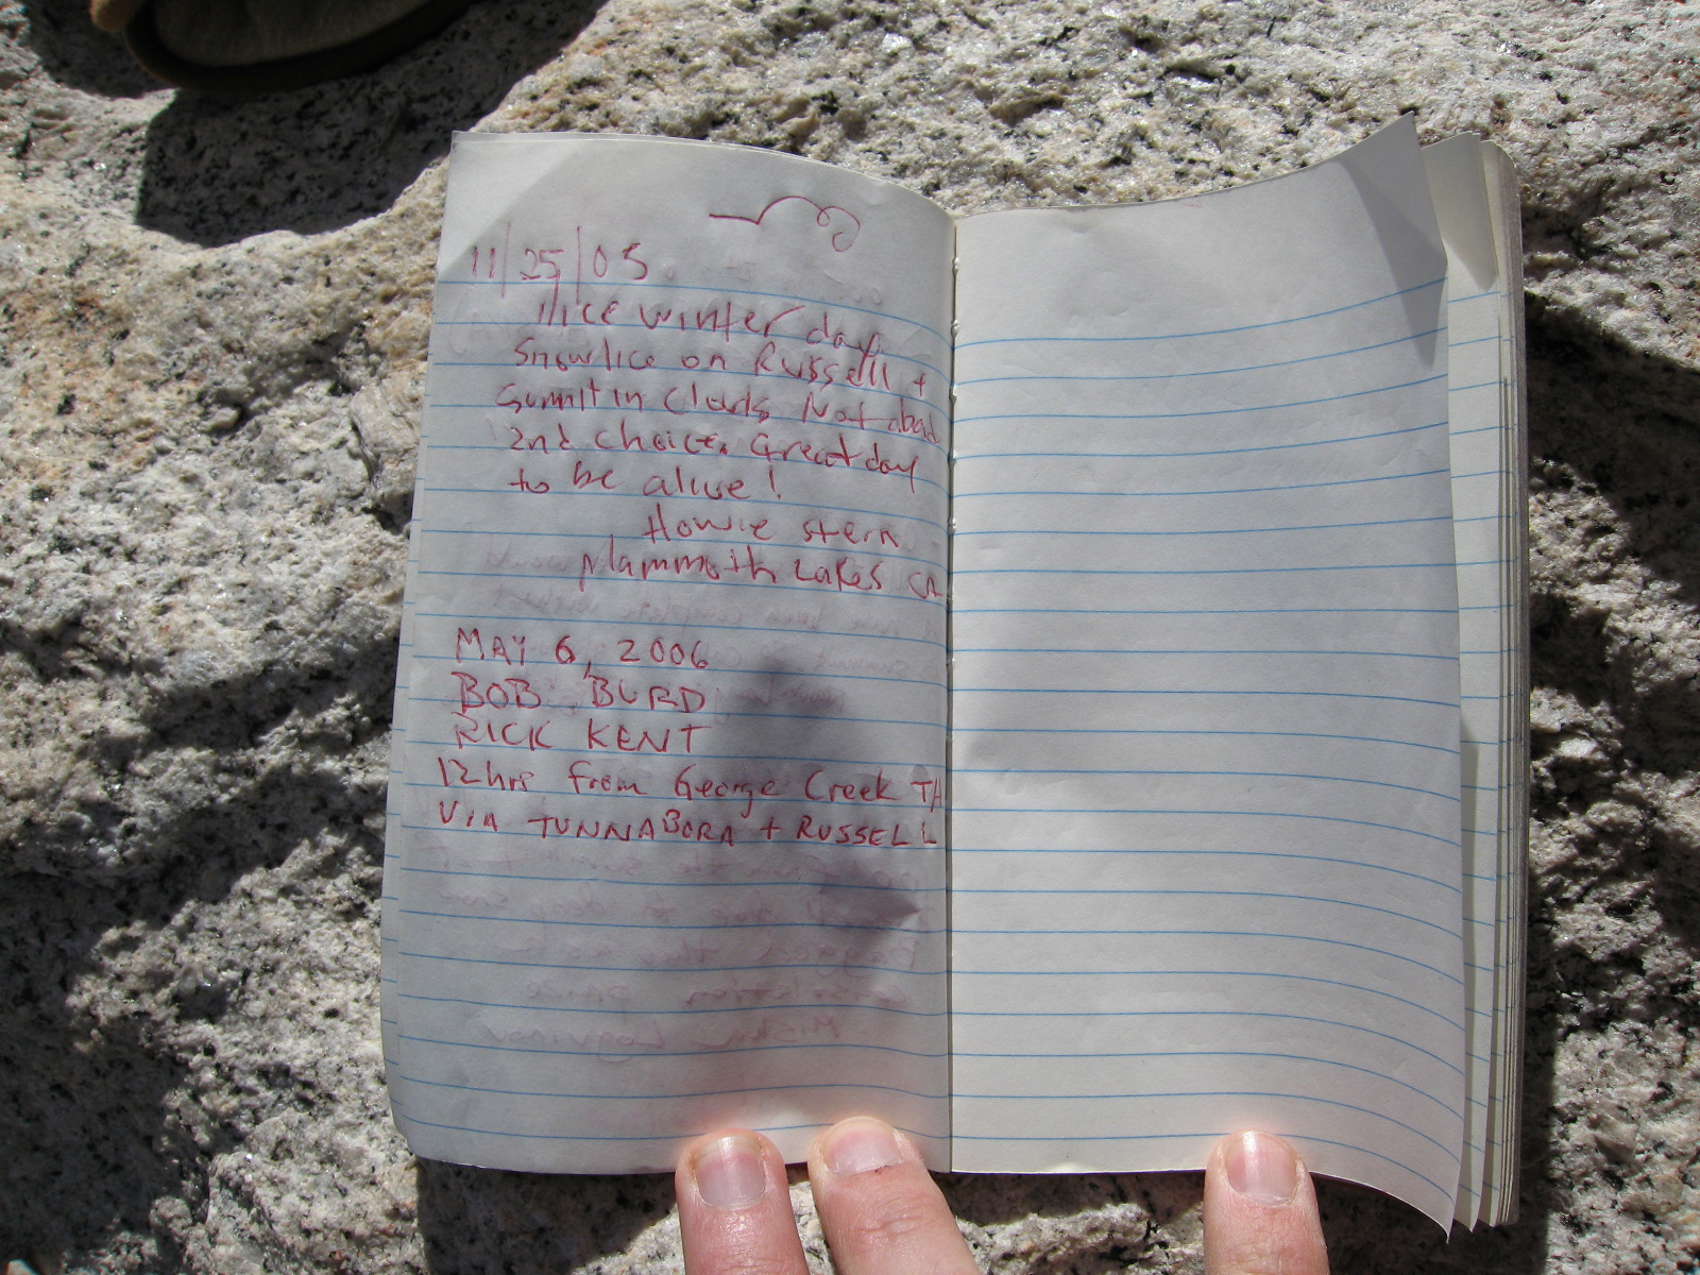 11/25/05
Nice winter day.
Snow/ice on Russell +
Summit in Clouds Not abad
2nd choice. Great day
to be alive!
Howie Stern
Mammoth Lakes CA
MAY 6, 2006
BOB BURD
RICK KENT
12hrs from George Creek TH
VIA TUNNABORA + RUSSELL